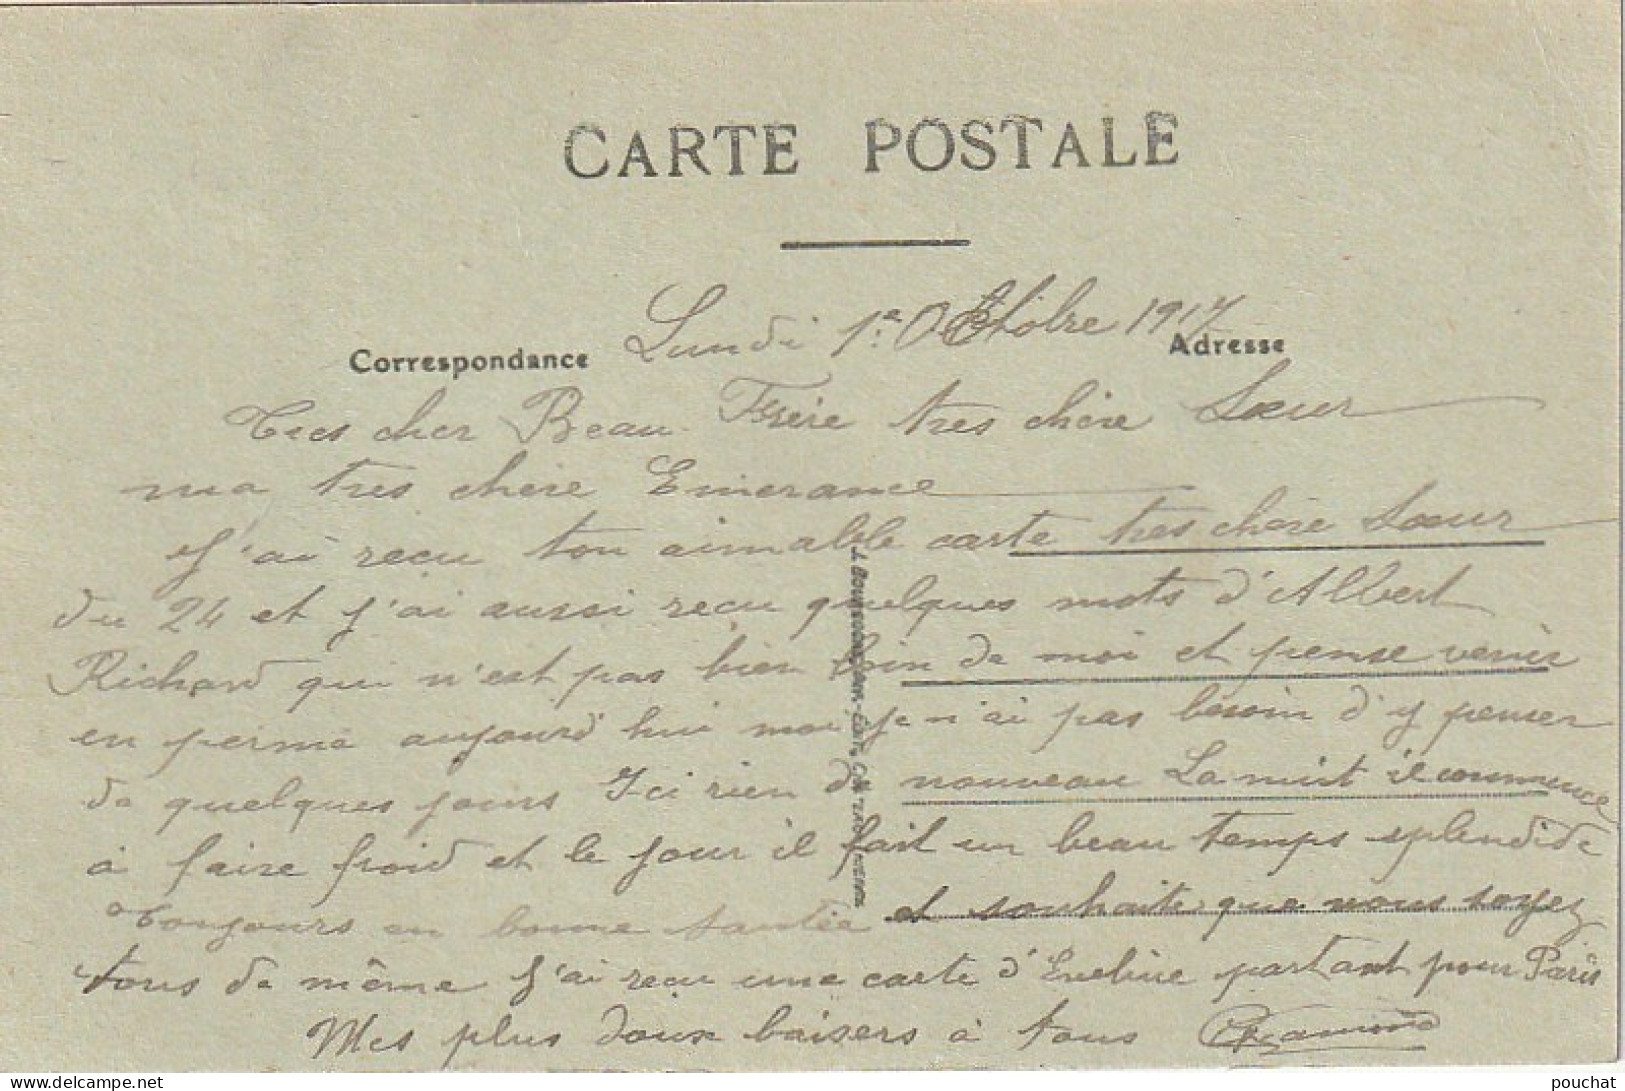 CARTE POSTALE
Lundi 1e Octobre 1917
Correspondance
Adresse
Tres cher Beau Frère tres chère Sœur
ma tres chère Emerance
J'ai recu ton aimable carte tres chère Sœur
du 24 et j'ai aussi recu quelques mots d'Albert
Richard qui n'est pas bien loin de moi et pense venir
en perme aujourd'hui moi je n'ai pas besoin d'y penser
de quelques jours Ici rien de nouveau La nuit il commence
à faire froid et le jour il fait un beau temps splendide
Toujours en bonne santée et souhaite que vous soyez
tous de même J'ai recu une carte d'Eveline partant pour Paris
Mes plus doux baisers à tous
pouchat